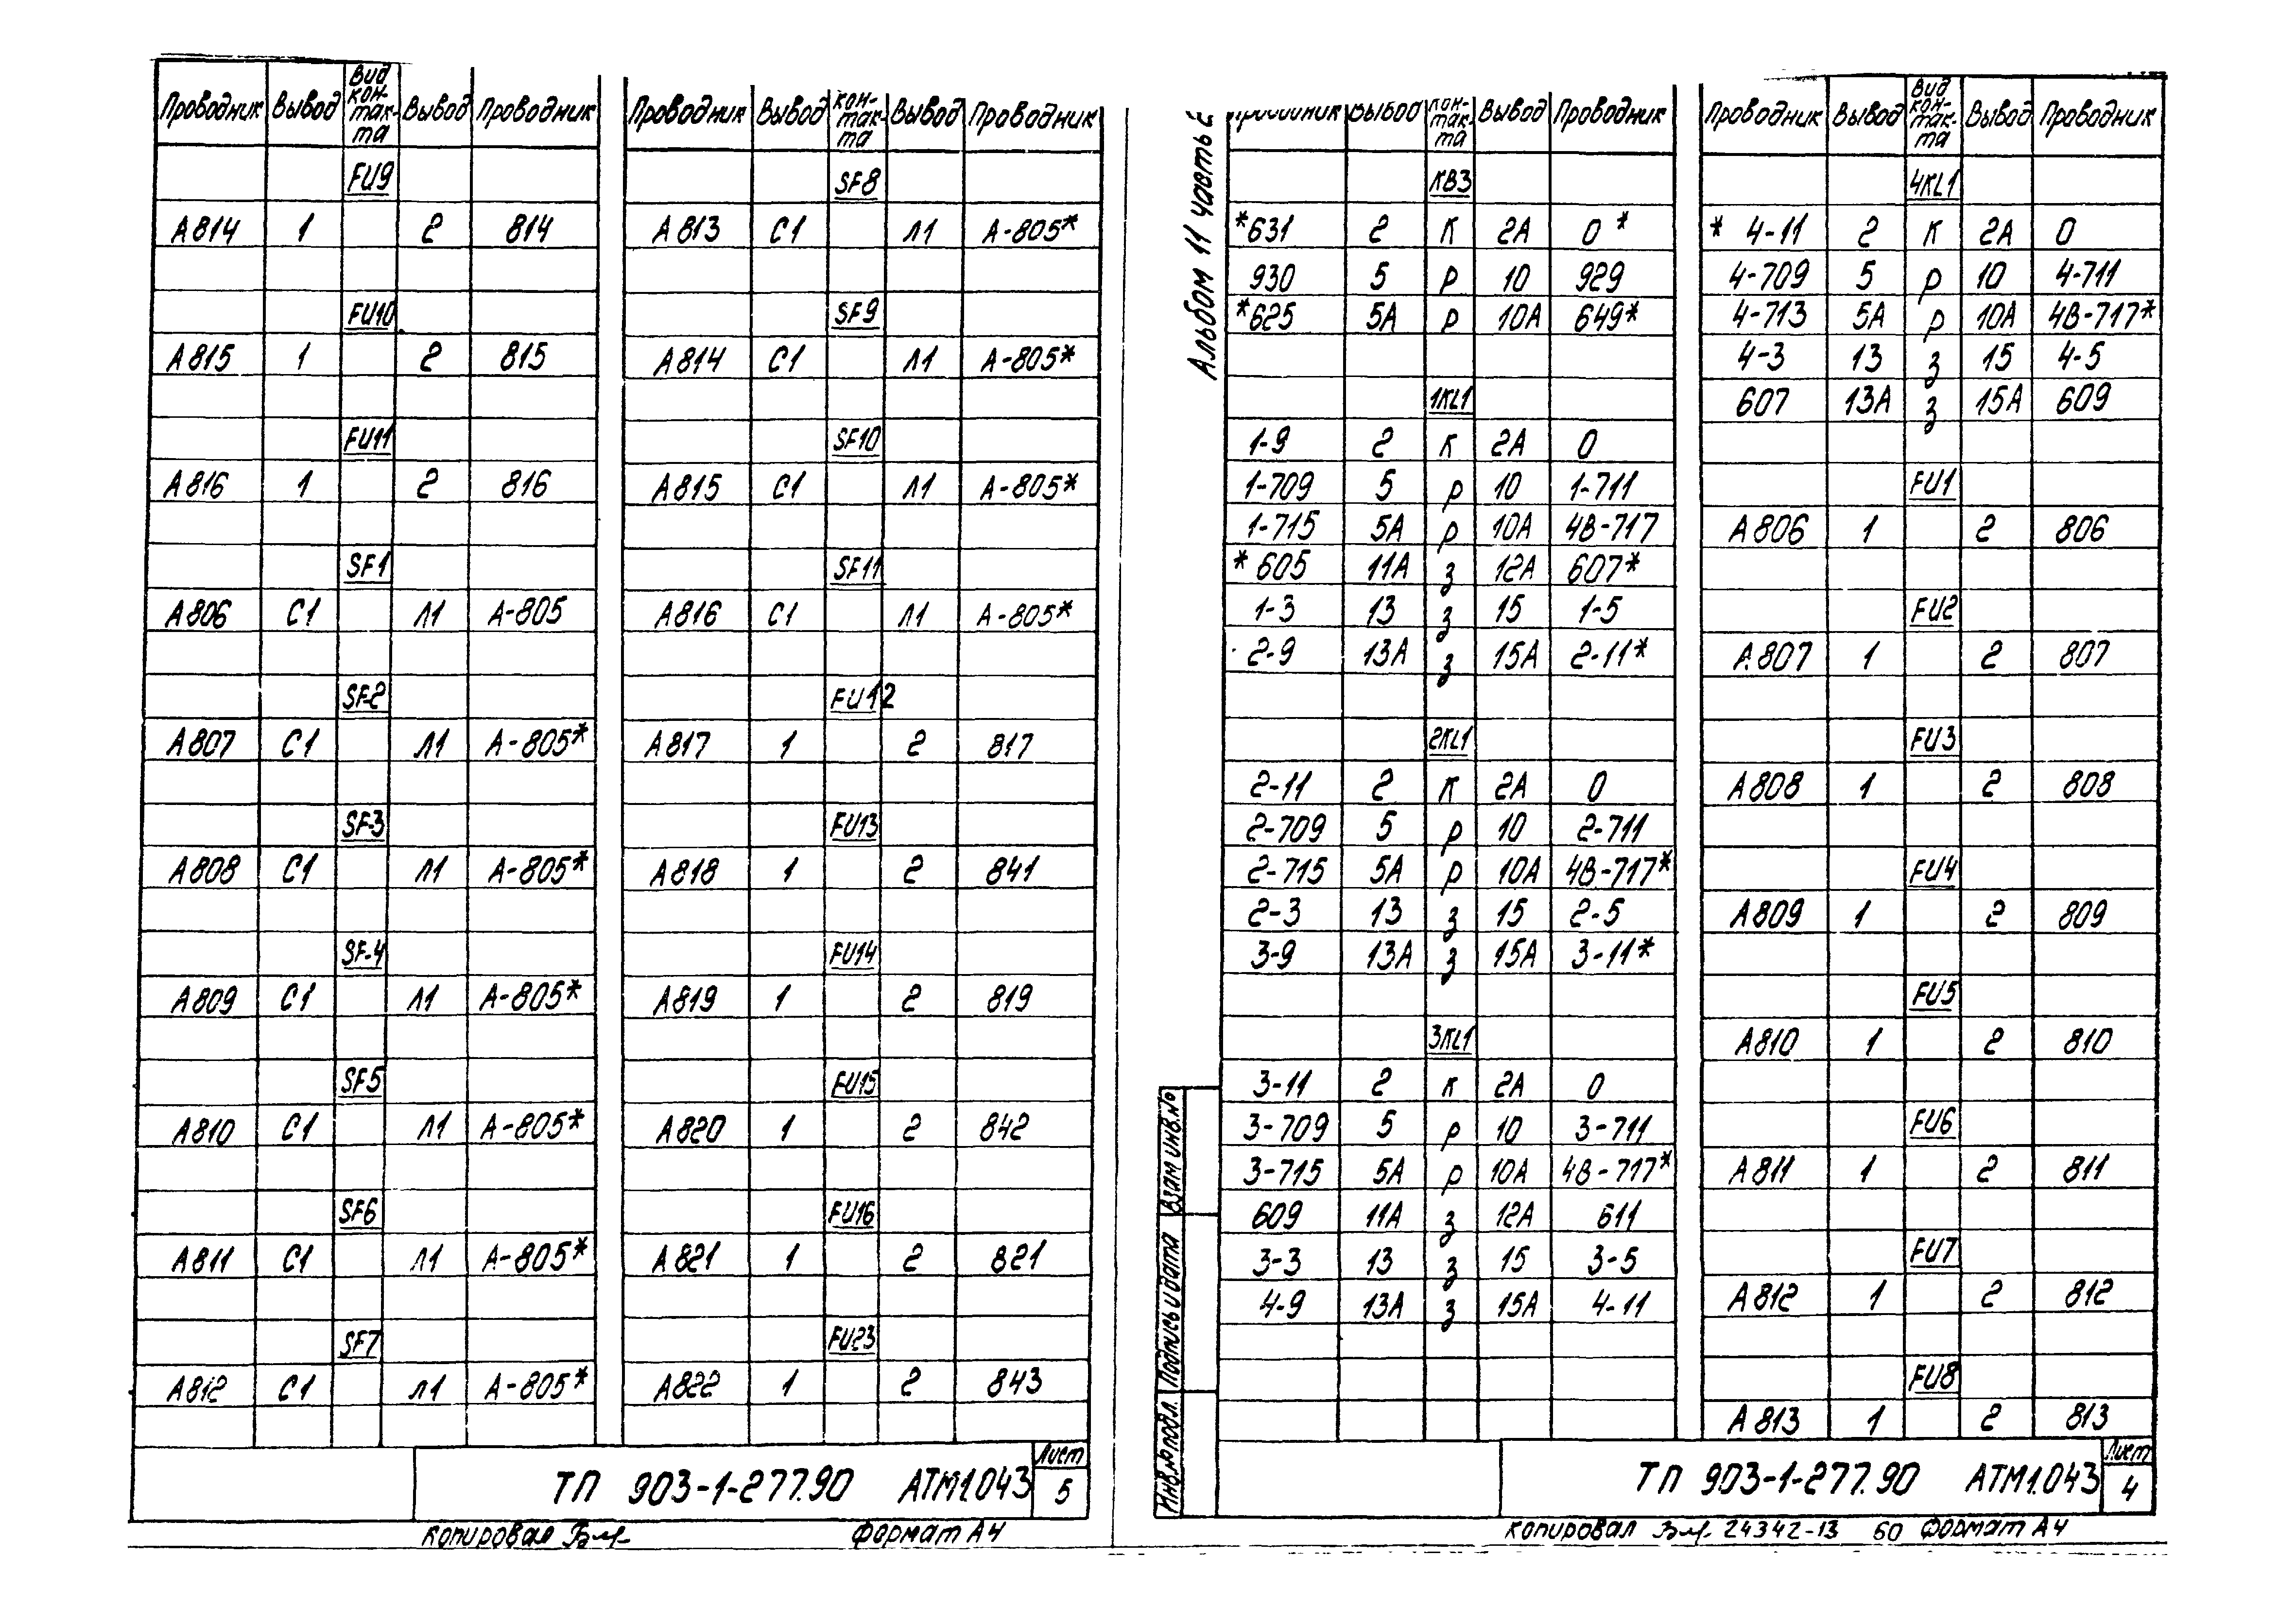 Проводник Вывод Вид кон-так-та Вывод Проводник
FU9
А814 1 2 814
FU10
А815 1 2 815
FU11
А816 1 2 816
SF1
А806 С1 Л1 А-805
SF2
А807 С1 Л1 А-805*
SF3
А808 С1 Л1 А-805*
SF4
А809 С1 Л1 А-805*
SF5
А810 С1 Л1 А-805*
SF6
А811 С1 Л1 А-805*
SF7
А812 С1 Л1 А-805*
Проводник Вывод кон-так-та Вывод Проводник
SF8
А813 С1 Л1 А-805*
SF9
А814 С1 Л1 А-805*
SF10
А815 С1 Л1 А-805*
SF11
А816 С1 Л1 А-805*
FU12
А817 1 2 817
FU13
А818 1 2 841
FU14
А819 1 2 819
FU15
А820 1 2 842
FU16
А821 1 2 821
FU23
А822 1 2 843
ТП 903-1-277.90 АТМ1.043
Лист
5
копировал
формат А4
Альбом 11 часть 2
Проводник Вывод кон-так-та Вывод Проводник
КВ3
*631 2 К 2А 0*
930 5 р 10 929
*625 5А р 10А 649*
1KL1
1-9 2 К 2А 0
1-709 5 р 10 1-711
1-715 5А р 10А 4В-717
*605 11А з 12А 607*
1-3 13 з 15 1-5
2-9 13А з 15А 2-11*
2KL1
2-11 2 К 2А 0
2-709 5 р 10 2-711
2-715 5А р 10А 4В-717*
2-3 13 з 15 2-5
3-9 13А з 15А 3-11*
3KL1
3-11 2 К 2А 0
3-709 5 р 10 3-711
3-715 5А р 10А 4В-717*
609 11А з 12А 611
3-3 13 з 15 3-5
4-9 13А з 15А 4-11
Проводник Вывод Вид кон-так-та Вывод Проводник
4KL1
* 4-11 2 К 2А 0
4-709 5 р 10 4-711
4-713 5А р 10А 4В-717*
4-3 13 з 15 4-5
607 13А з 15А 609
FU1
А806 1 2 806
FU2
А807 1 2 807
FU3
А808 1 2 808
FU4
А809 1 2 809
FU5
А810 1 2 810
FU6
А811 1 2 811
FU7
А812 1 2 812
FU8
А813 1 2 813
Взам инв.№
Подпись и дата
Инв.№ подл.
ТП 903-1-277.90 АТМ1.043
Лист
4
копировал 24342-13 60 формат А4